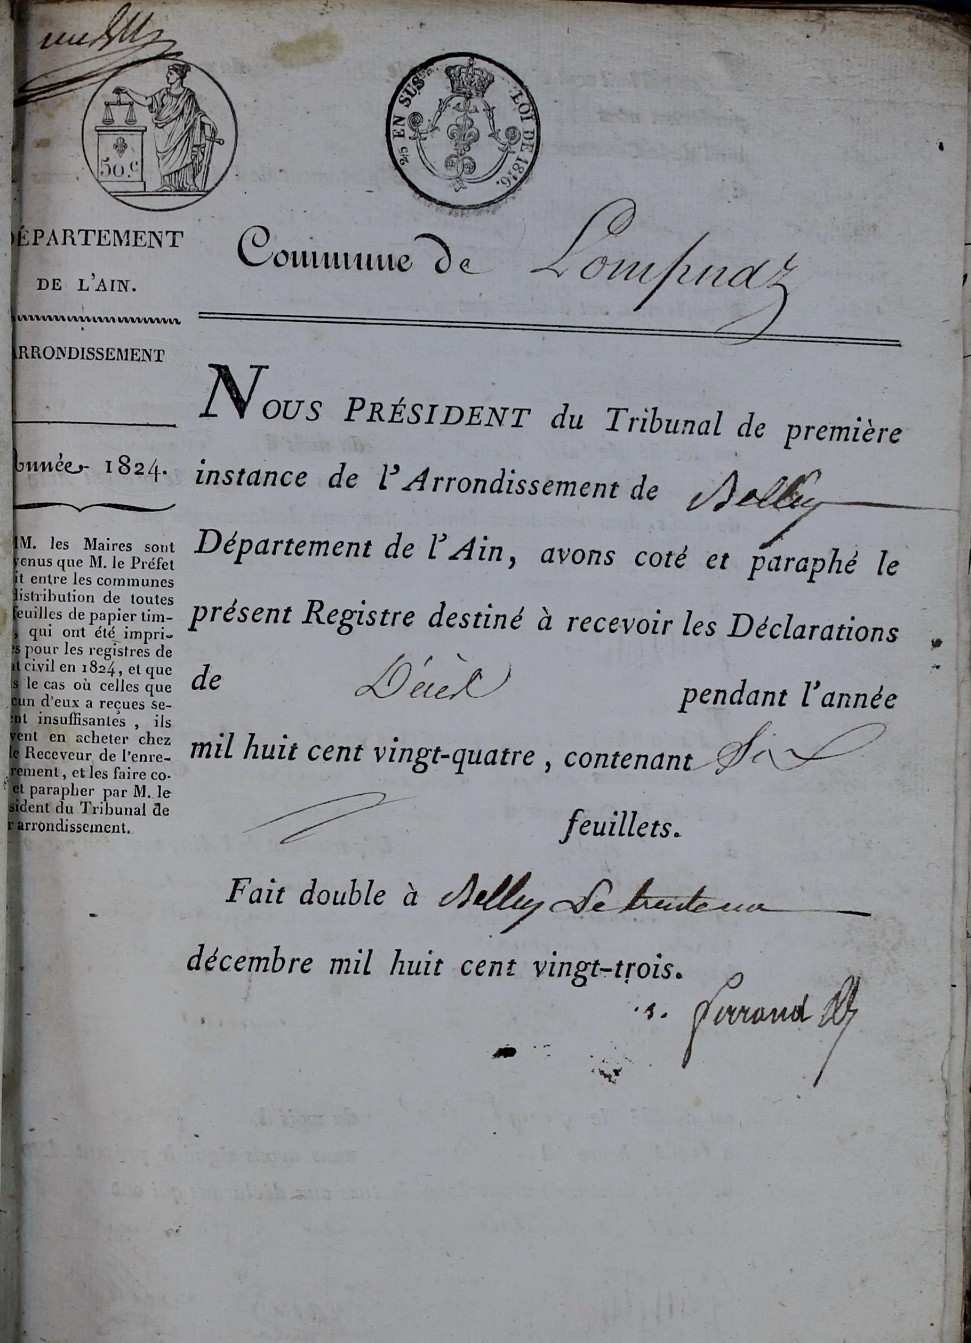 50.c
2/5 EN SUS. LOI DE 1816.
ÉPARTEMENT
DE L'AIN.
RRONDISSEMENT
Année 1824.
M. les Maires sont
venus que M. le Préfet
it entre les communes
distribution de toutes
feuilles de papier tim-
, qui ont été impri-
s pour les registres de
t civil en 1824, et que
s le cas où celles que
cun d'eux a reçues se-
nt insuffisantes, ils
vent en acheter chez
le Receveur de l'enre-
rement, et les faire co-
et parapher par M. le
sident du Tribunal de
r arrondissement.
Commune de Lompnaz
NOUS PRÉSIDENT du Tribunal de première
instance de l'Arrondissement de Belley
Département de l'Ain, avons coté et paraphé le
présent Registre destiné à recevoir les Déclarations
de Décès pendant l'année
mil huit cent vingt-quatre, contenant Six
feuillets.
Fait double à Belley Le trente un
décembre mil huit cent vingt-trois.
Ferrand